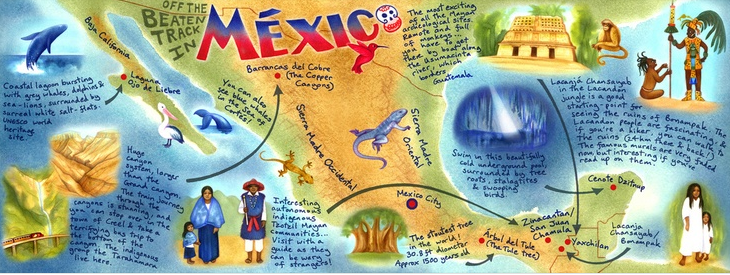 OFF THE
BEATEN
TRACK
IN
MÉXICO
Baja California
Coastal lagoon bursting
with grey whales, dolphins &
sea-lions, surrounded by
surreal white salt-flats.
UNESCO world
heritage
site.
Laguna
Ojo de Liebre
You can also
see blue whales
in the Sea of
Cortés!
Barrancas del Cobre
(The Copper
Canyons)
Huge
canyon
system, larger
than the
Grand Canyon.
The train journey
through the
canyons is stunning, and
you can stop over in the
town of Creel & take a
terrifying bus trip to
the bottom of the
canyon. The
Tarahumara
live here.
Sierra Madre Occidental
Sierra Madre
Oriental
Interesting
autonomous
indigenous
Tzotzil Mayan
communities...
Visit with a
guide as they
can be wary
of strangers!
Mexico City
The stoutest tree
in the world!
30.8 ft diameter
Approx 1500 years old
Arbol del Tule
(The Tule Tree)
The most exciting
of all the Mayan
archeological sites.
Remote and full
of monkeys...
you have to get
there by boat along
the Usumacinta
river which
borders
Guatemala
Swim in this beautifully
cold underground pool,
surrounded by tree
roots, stalagtites &
swooping
birds.
Lacanjá Chansayab
in the Lacandon
jungle is a good
starting point for
seeing the ruins of Bonampak. The
Lacandon people are fascinating, &
if you're a hiker you can walk to
the ruins (24km there & back)
The famous murals are very faded
now but interesting if you've
read up on them.
Cenote Dzitnup
Zinacantan/
San Juan
Chamula
Yaxchilan
Lacanja
Chansayab/
Bonampak